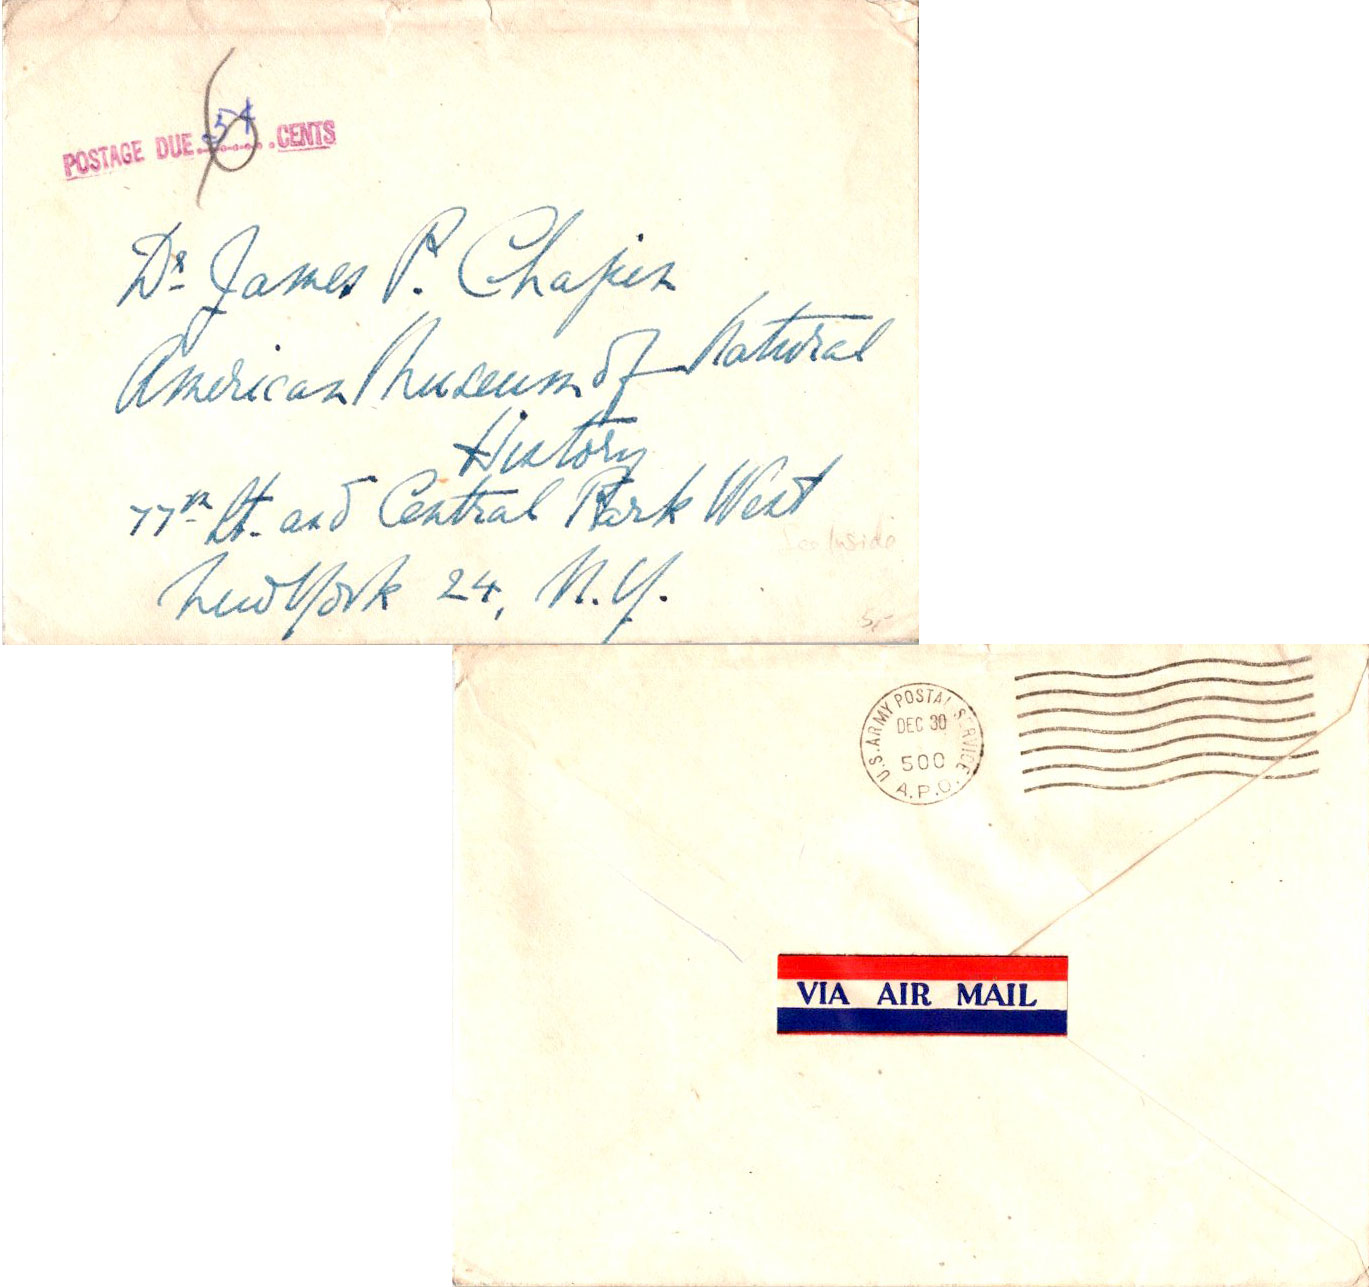 POSTAGE DUE 5¢ CENTS
6
Dr. James P. Chapin
American Museum of Natural
History
77th St. and Central Park West
New York 24, N.Y.
See Inside
5-
U.S. ARMY POSTAL SERVICE
DEC 30
500
A.P.O.
VIA AIR MAIL